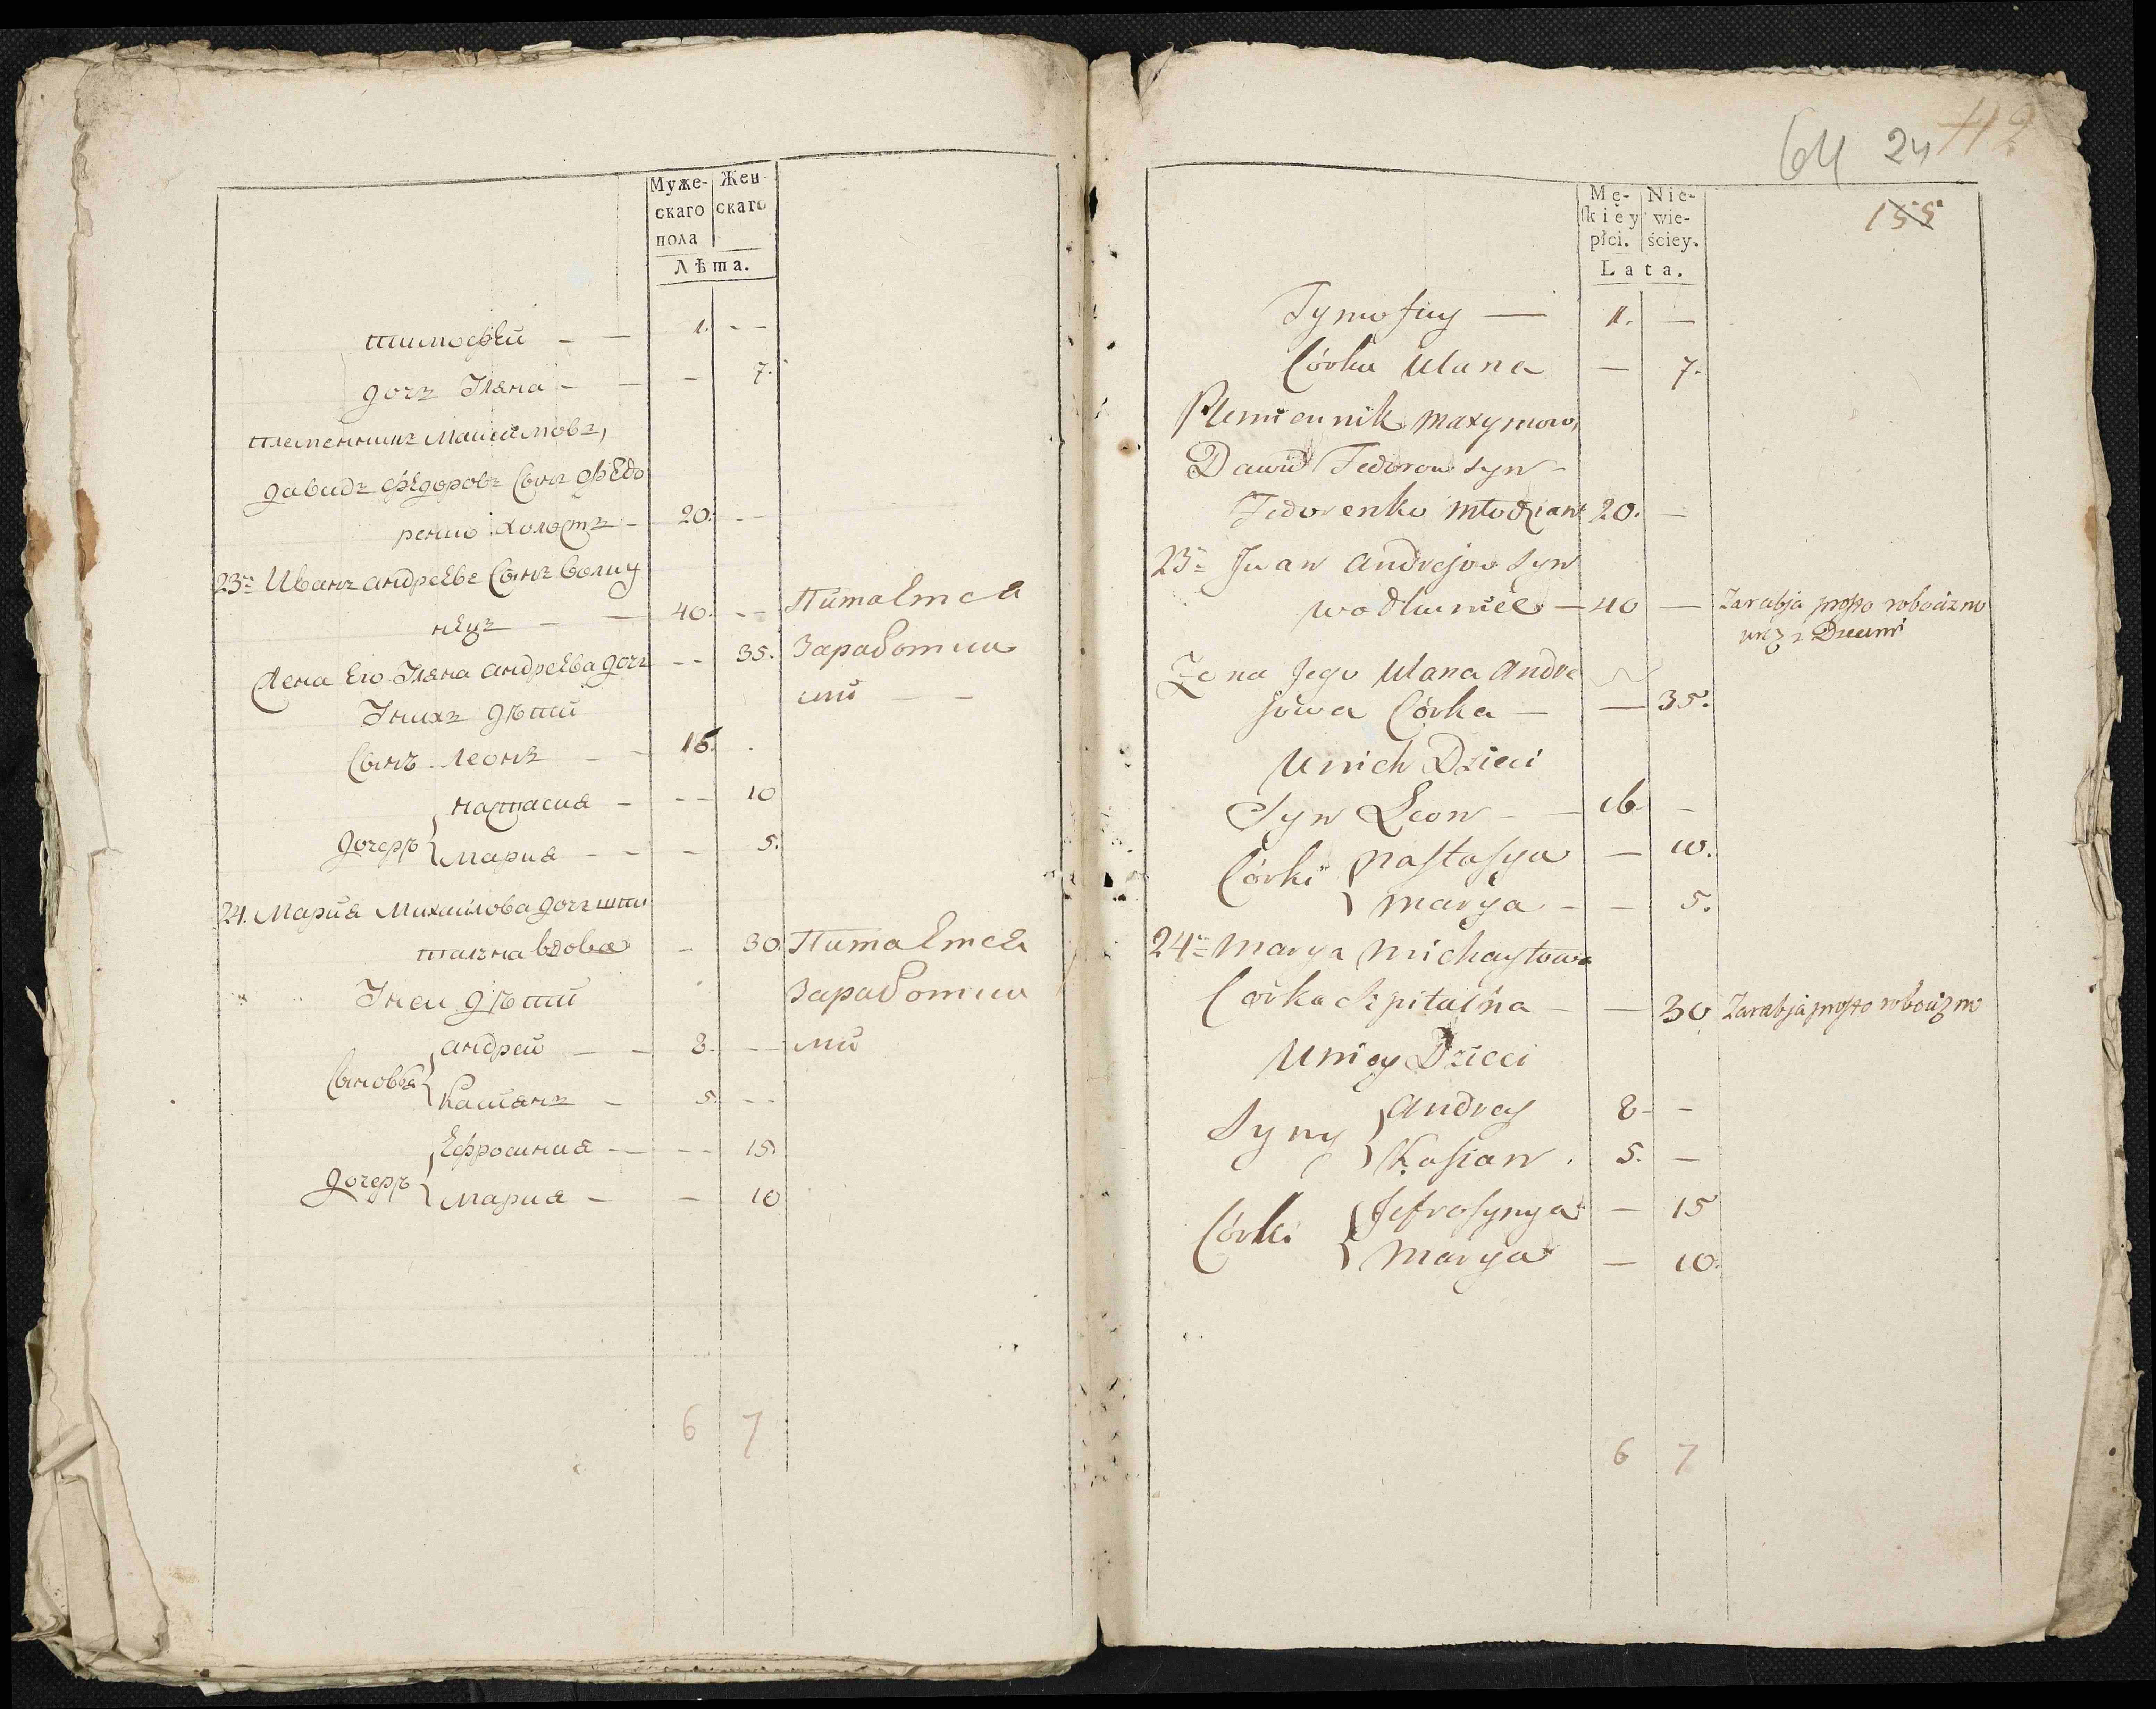 Муже- Жен-
скаго скаго
пола
Лѣта.
тимофЕй — — 1. - -
дочъ Уляна - — - 7.
племенникъ Максимовъ,
давидъ фЕдоровъ Сынъ фЕдо
ренко холостъ - 20. - -
23= Иванъ андреЕвъ Сынъ
нЕцъ — — 40. - - ПитаЕтся
Жена Его Уляна андреЕва дочъ - - 35. Заработка
ми — -
Унихъ дѣти
Сынъ Леонъ - - 16.
дочерѣ { настасия - - - 10
мария - - - 5.
24. Мария Михайлова дочъ шпи
тална вдова - 30. ПитаЕтся
Уней дѣти Заработка
Сыновья { андрей — - 8. - - ми
Касиянъ - 5. - -
дочерѣ { Ефросиния - - - - 15.
мария - - 10
6 7
64 24 112
155
Mę- Nie-
ſkiéy wie-
płci. ściey.
Lata.
Tymofiey — 1. —
Córka Ulana — 7.
Plemiennik maxymow,
Dawid Fedorow syn -
Fedorenko młodzian 20. —
23= Iwan Andrejow syn
— 40 — Zarabja prosto robocizno
wraz z Dziecmi
Żona Jego Ulana Andre
jowa Córka — — 35.
Unich Dzieci
Syn Leon - — 16. -
Córki { nastasya — 10.
marya - - 5.
24= Marya Michayłowa
Corka szpitalna - — 30 Zarabja prosto robocizno
Uniey Dzieci
Syny { Andrey 8- -
Kasian . 5. —
Córki { Jefrosynya — 15
Marya — 10.
6 7